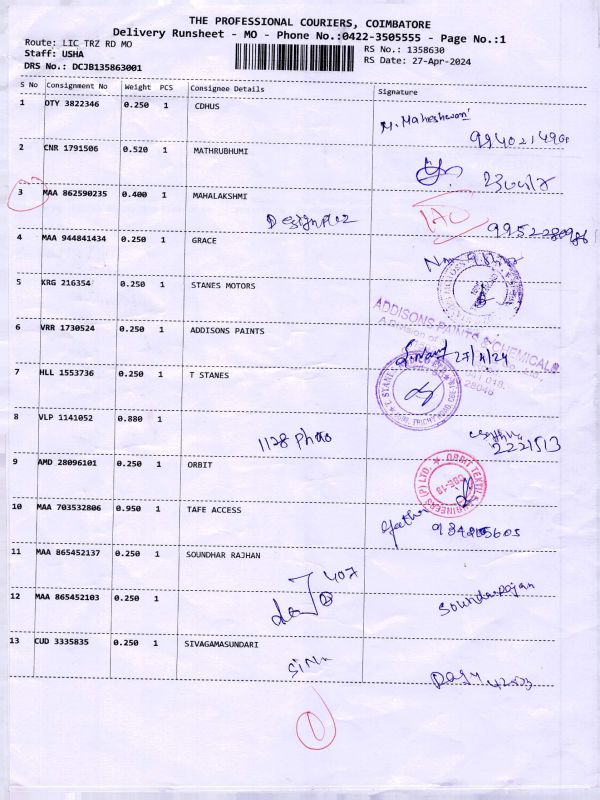 THE PROFESSIONAL COURIERS, COIMBATORE
Delivery Runsheet - MO - Phone No.:0422-3505555 - Page No.:1
Route: LIC TRZ RD MO
RS No.: 1358630
Staff: USHA
RS Date: 27-Apr-2024
DRS No.: DCJB135863001
S No Consignment No Weight PCS Consignee Details Signature
1 OTY 3822346 0.250 1 CDHUS
M. Maheshwari
2 CNR 1791506 0.520 1 MATHRUBHUMI
3 MAA 862590235 0.400 1 MAHALAKSHMI
4 MAA 944841434 0.250 1 GRACE
5 KRG 216354 0.250 1 STANES MOTORS
6 VRR 1730524 0.250 1 ADDISONS PAINTS
ADDISONS PAINTS & CHEMICALS
A Division of
27/4/24
7 HLL 1553736 0.250 1 T STANES
8 VLP 1141052 0.880 1
1128 Photo
2221513
9 AMD 28096101 0.250 1 ORBIT
ORBIT TEXTILE ENGINEERS (P) LTD.
CBE-18
10 MAA 703532806 0.950 1 TAFE ACCESS
Geetha
11 MAA 865452137 0.250 1 SOUNDHAR RAJHAN
407
12 MAA 865452103 0.250 1
Soundarrajan
13 CUD 3335835 0.250 1 SIVAGAMASUNDARI